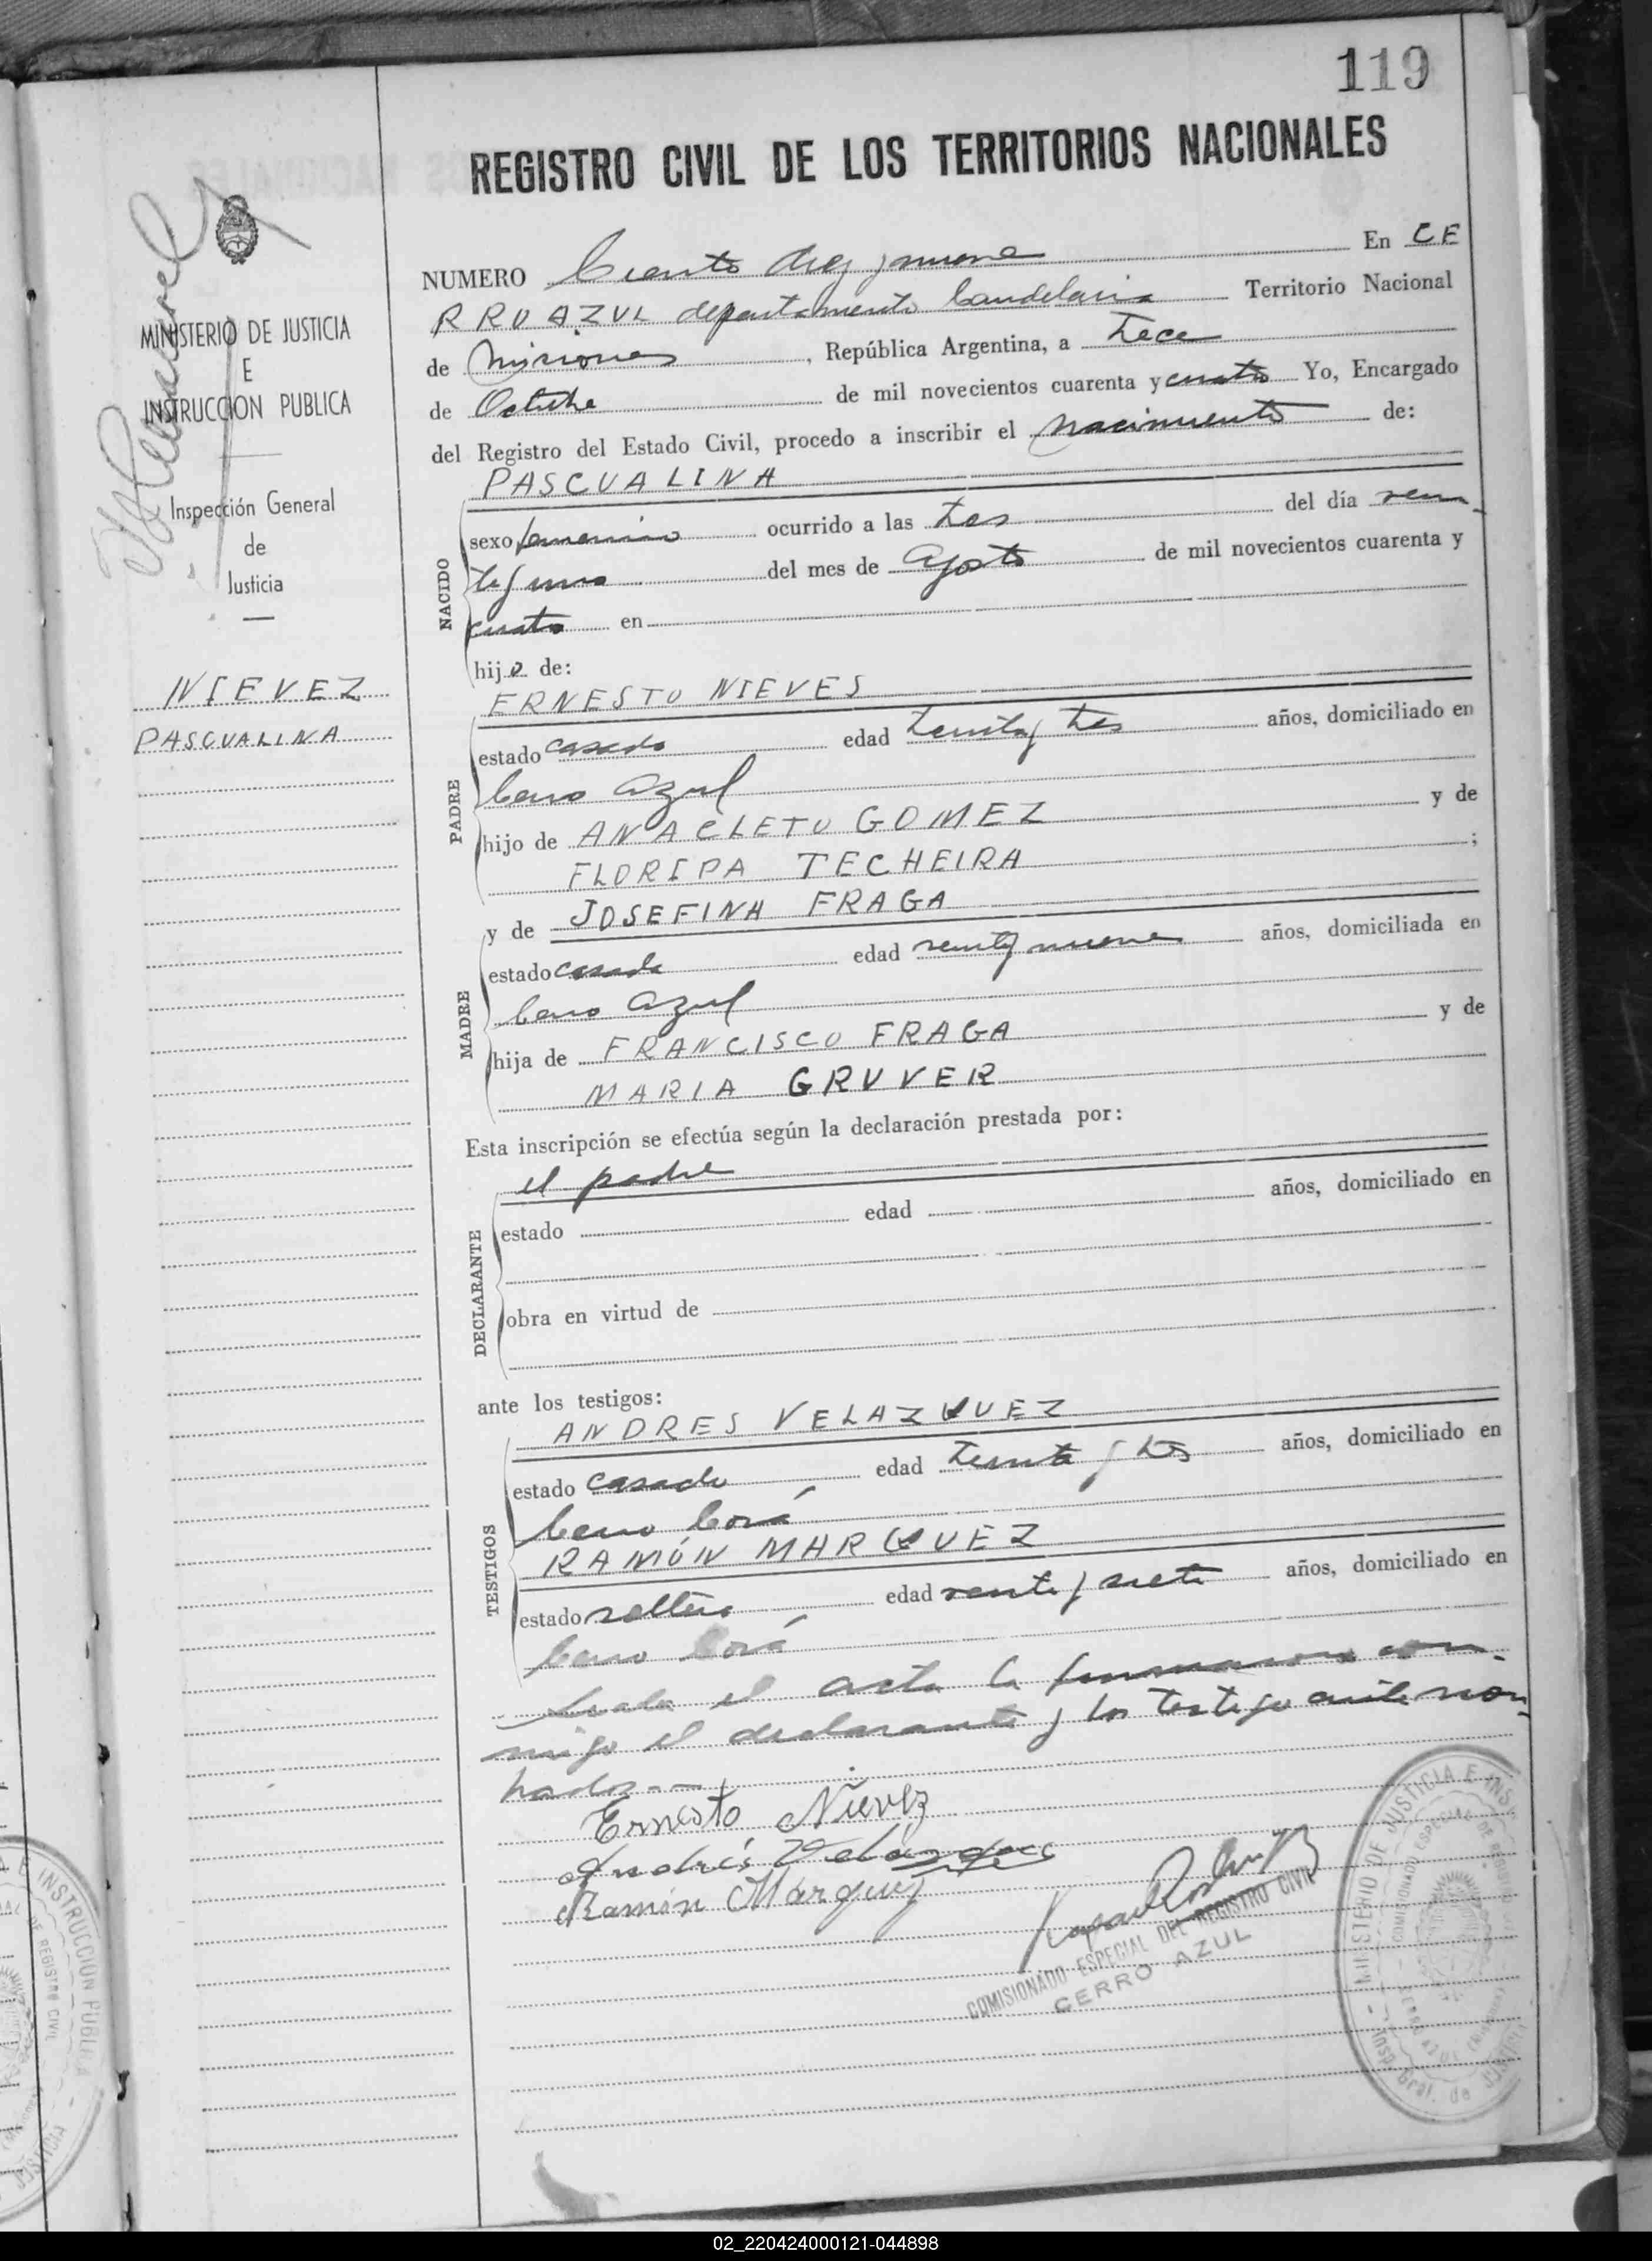 119
REGISTRO CIVIL DE LOS TERRITORIOS NACIONALES
MINISTERIO DE JUSTICIA
E
INSTRUCCION PUBLICA
Inspección General
de
Justicia
NIEVEZ
PASCUALINA
NUMERO Ciento diez y nueve En CE
RRO AZUL departamento Candelaria Territorio Nacional
de Misiones, República Argentina, a trece
de Octubre de mil novecientos cuarenta y cuatro Yo, Encargado
del Registro del Estado Civil, procedo a inscribir el nacimiento de:
PASCUALINA
NACIDO
sexo femenino ocurrido a las tres del día vein
te y uno del mes de Agosto de mil novecientos cuarenta y
cuatro en
hija de:
ERNESTO NIEVES
PADRE
estado casado edad treinta y tres años, domiciliado en
Cerro Azul
hijo de ANACLETO GOMEZ y de
FLORIPA TECHEIRA ;
y de JOSEFINA FRAGA
MADRE
estado casada edad veinte y nueve años, domiciliada en
Cerro Azul
hija de FRANCISCO FRAGA y de
MARIA GRUVER
Esta inscripción se efectúa según la declaración prestada por:
el padre
DECLARANTE
estado edad años, domiciliado en
obra en virtud de
ante los testigos:
ANDRES VELAZQUEZ
TESTIGOS
estado casado edad treinta y tres años, domiciliado en
Cerro Corá
RAMÓN MARQUEZ
estado soltero edad veinte y siete años, domiciliado en
Cerro Corá
Leida el acta la firmaron con
migo el declarante y los testigo antes nom
brados--
Ernesto Nievez
Andrés Velázquez
Ramón Márquez
COMISIONADO ESPECIAL DEL REGISTRO CIVIL
CERRO AZUL
MINISTERIO DE JUSTICIA E INS
COMISIONADO ESPECIAL DE REGISTRO
Insp. Gral. de Justicia
E INSTRUCCION PUBLICA
DE REGISTRO CIVIL
02_220424000121-044898